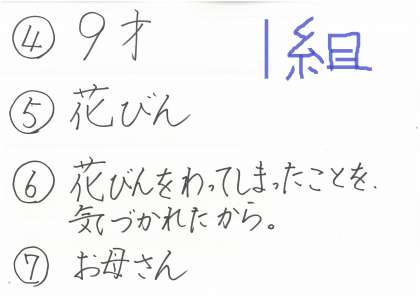 1組
④ 9才
⑤ 花びん
⑥ 花びんをわってしまったことを、
気づかれたから。
⑦ お母さん